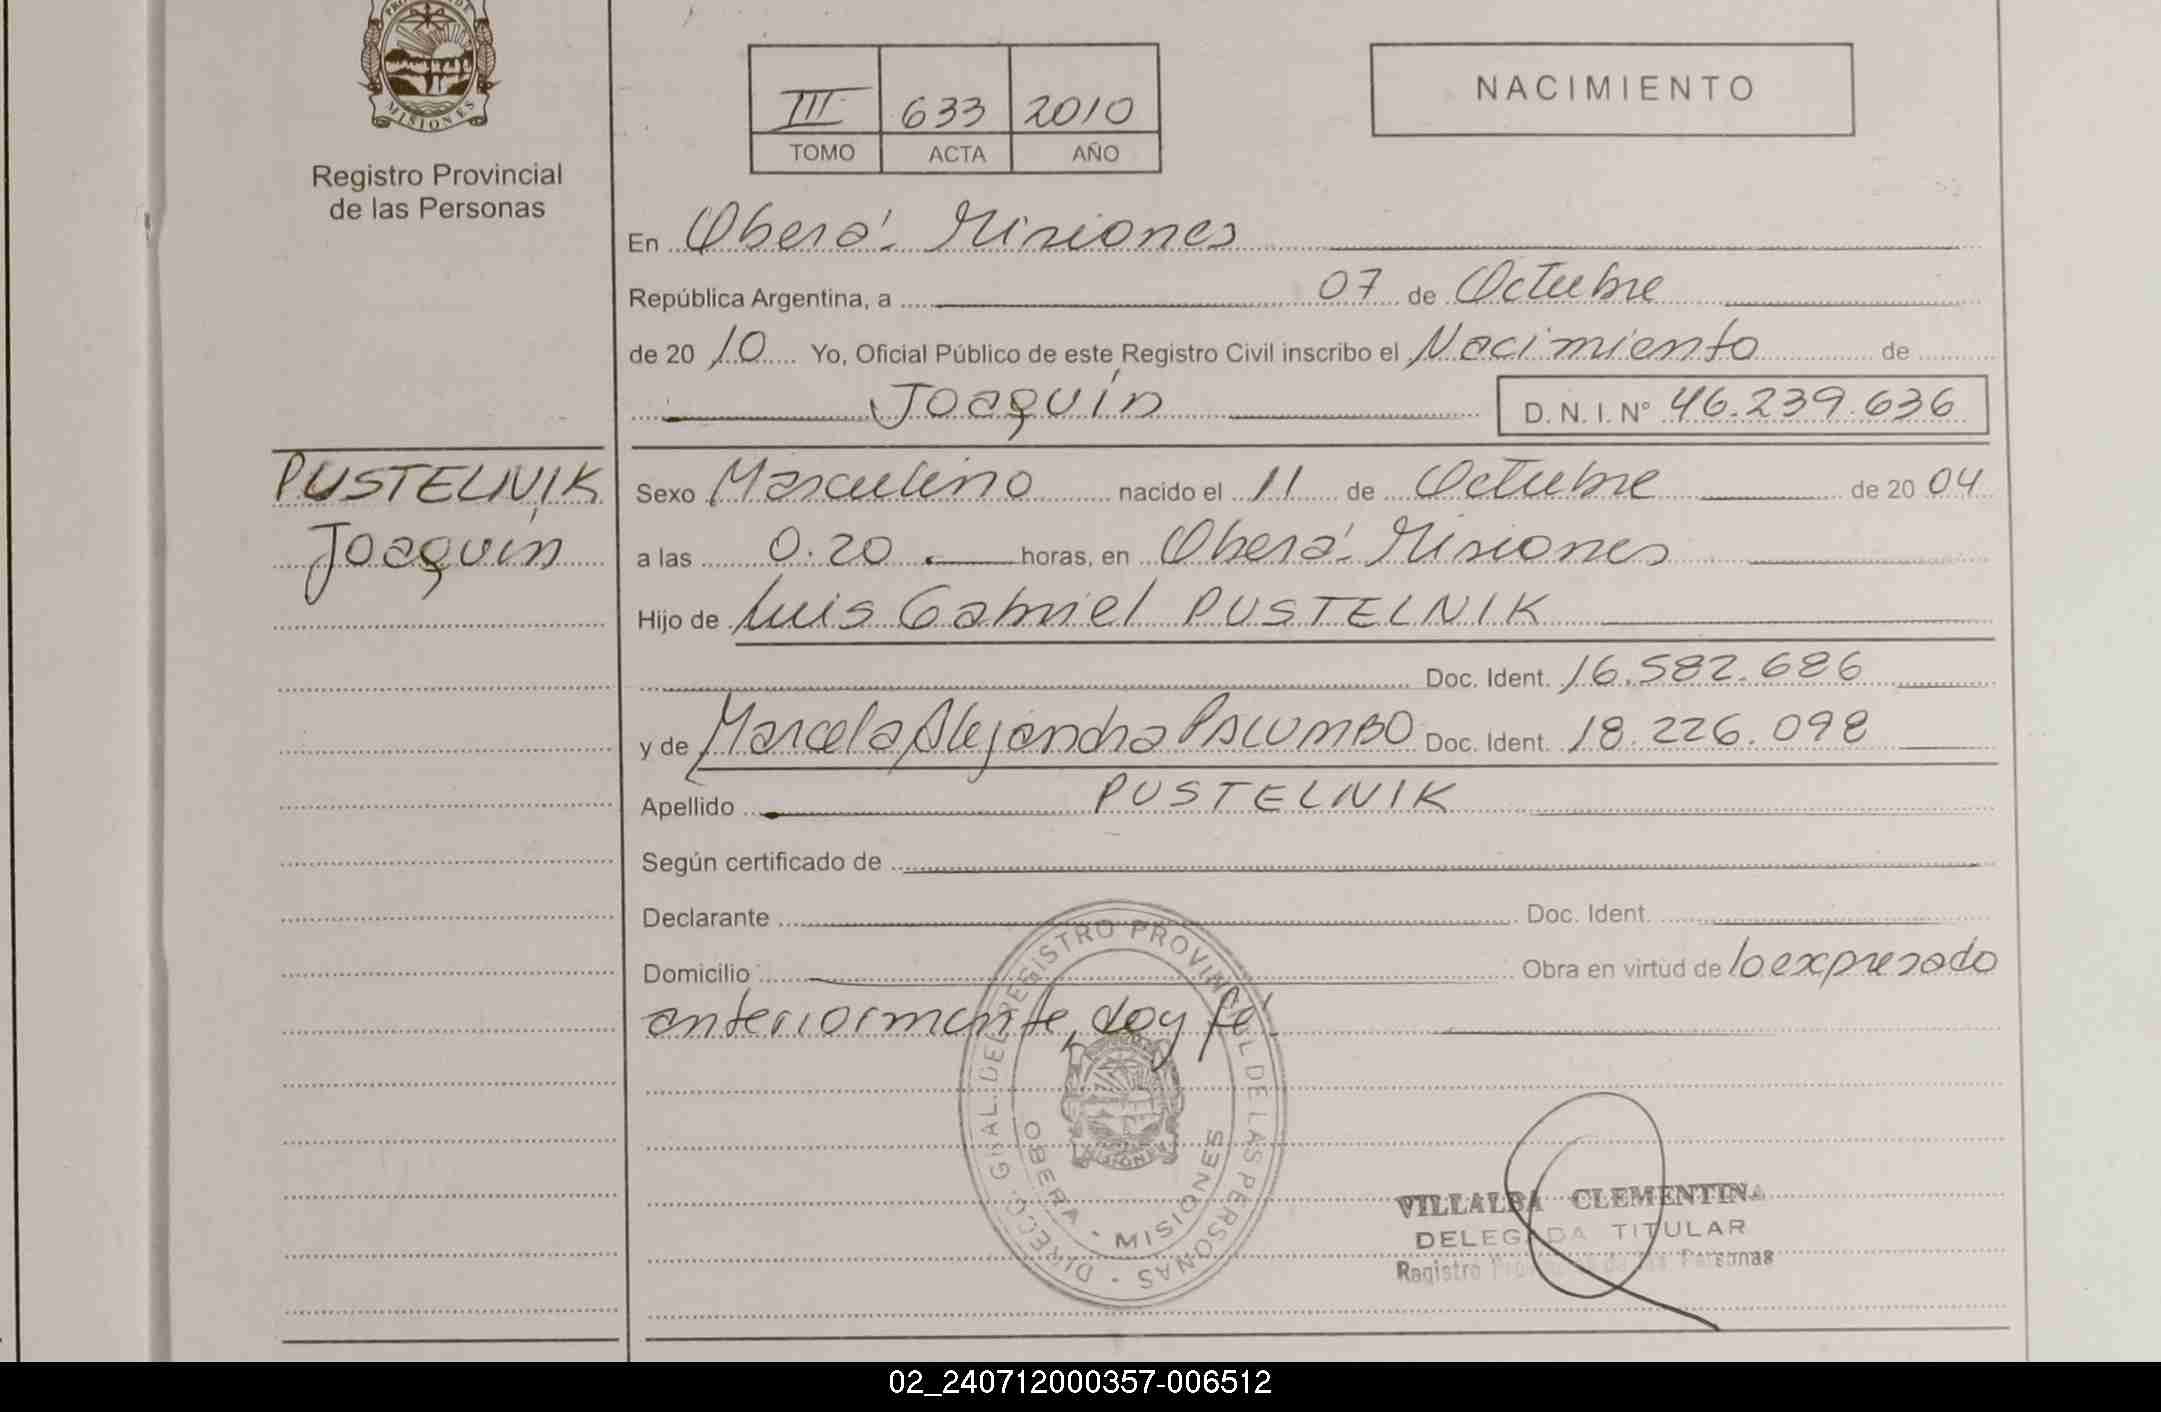 MISIONES
Registro Provincial
de las Personas
III 633 2010
TOMO ACTA AÑO
NACIMIENTO
En Oberá - Misiones
República Argentina, a 07 de Octubre
de 20 10 Yo, Oficial Público de este Registro Civil inscribo el Nacimiento de
Joaquín D. N. I. Nº 46.239.636
PUSTELNIK
Joaquín
Sexo Masculino nacido el 11 de Octubre de 20 04
a las 0.20 horas, en Oberá - Misiones
Hijo de Luis Gabriel PUSTELNIK
Doc. Ident. 16.582.686
y de Marcela Alejandra PALUMBO Doc. Ident. 18.226.098
Apellido PUSTELNIK
Según certificado de
Declarante Doc. Ident.
Domicilio Obra en virtud de lo expresado
anteriormente, doy fé.
DIRECC. GRAL. DEL REGISTRO PROVINCIAL DE LAS PERSONAS
MISIONES
OBERA - MISIONES
VILLALBA CLEMENTINA
DELEGADA TITULAR
Registro Provincial de las Personas
02_240712000357-006512